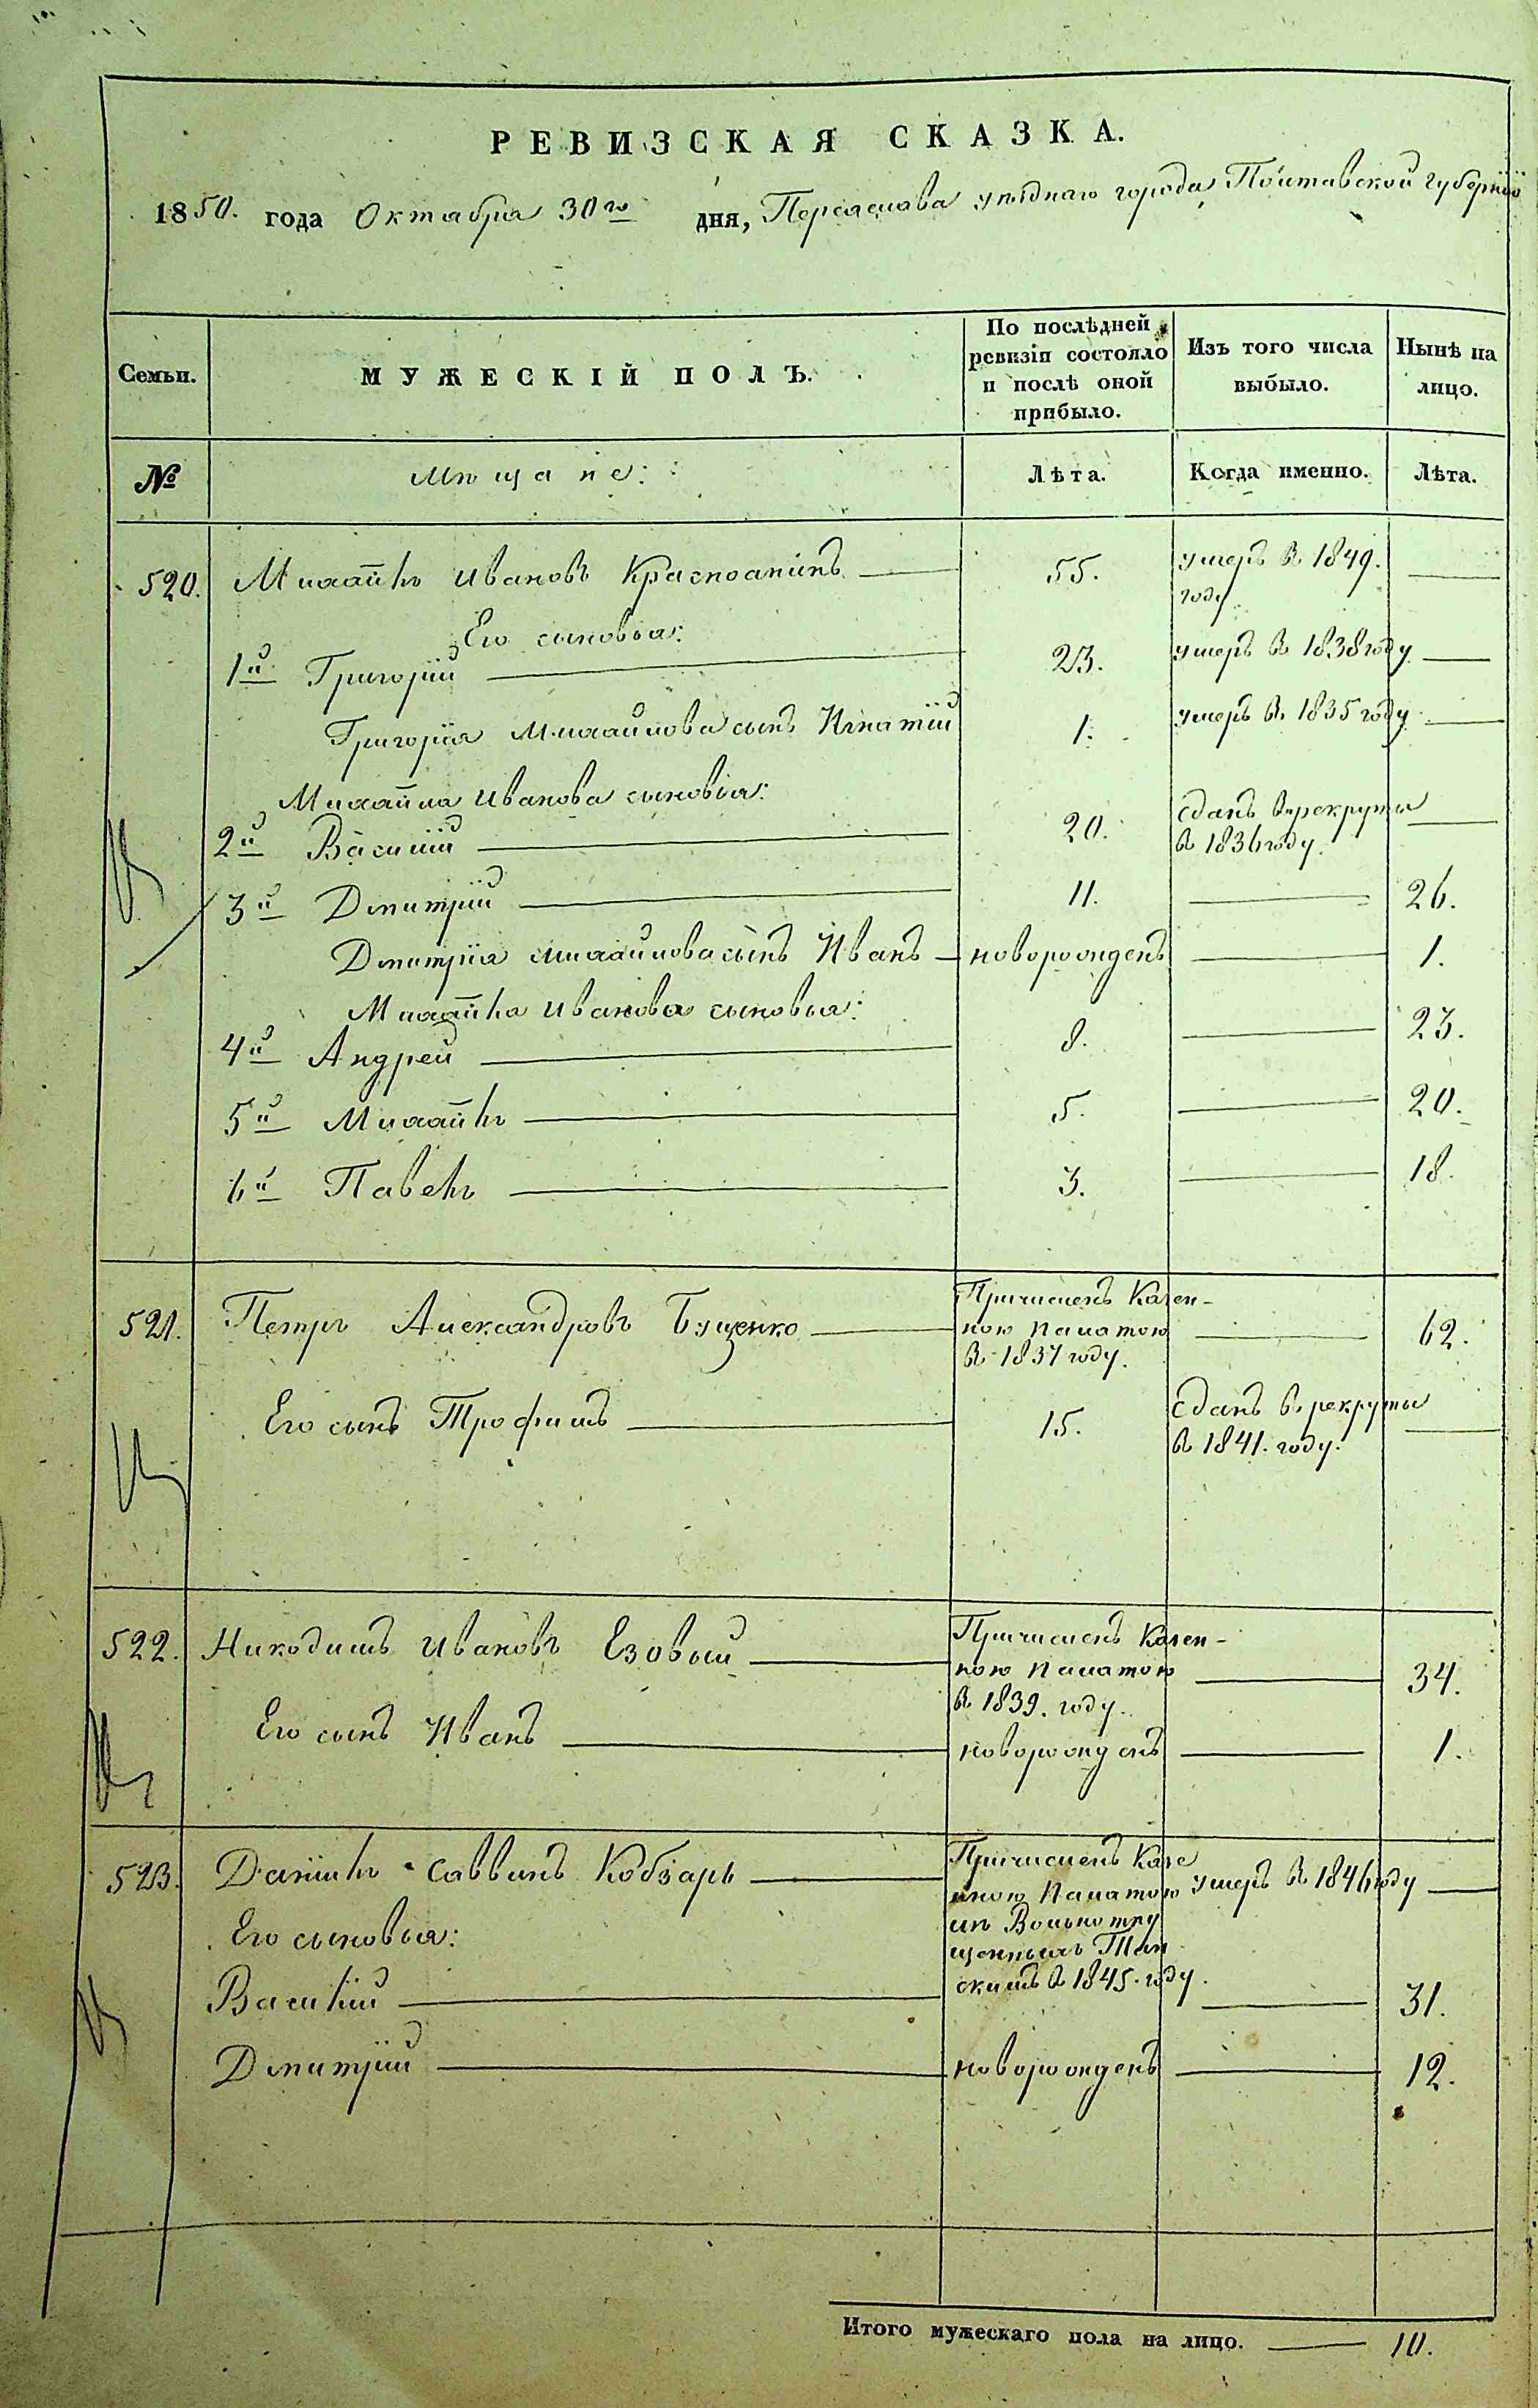 РЕВИЗСКАЯ СКАЗКА.
1850. года Октабря 30го дня, Переяслава уѣзднаго города, Полтавской губерніи
Семьи.
МУЖЕСКІЙ ПОЛЪ.
По послѣдней ревизіи состояло и послѣ оной прибыло.
Изъ того числа выбыло.
Нынѣ на лицо.
№
Мѣщане:
Лѣта.
Когда именно.
Лѣта.
520. Михайлъ Ивановъ 55. умеръ въ 1849. году
Его сыновья:
1й Григорій 23. умеръ въ 1838 году
Григорія Михайлова сынъ Игнатій 1. умеръ въ 1835 году
Михайла Иванова сыновья:
2й Василій 20. сданъ врекруты въ 1836 году.
3й Дмитрій 11. 26.
Дмитрія Михайлова сынъ Иванъ новорожденъ 1.
Михайла Иванова сыновья:
4й Андрей 8. 23.
5й Михайлъ 5. 20.
6й Павелъ 3. 18.
521. Петръ Александровъ Буценко Причисленъ Казен-
ною Палатою 62.
въ 1837 году.
Его сынъ Трофимъ 15. Сданъ в рекруты
въ 1841. году.
522. Никодимъ Ивановъ Езовый Причисленъ Казен-
ною Палатою 34.
въ 1839. году.
Его сынъ Иванъ новорожденъ 1.
523. Даніилъ Саввинъ Кобзарь Причисленъ Казе
нною Палатою умеръ въ 1846 году
изъ Вольноотпу
щенныхъ
въ 1845. году.
Его сыновья:
Василій 31.
Дмитрій новорожденъ 12.
Итого мужескаго пола на лицо. 10.